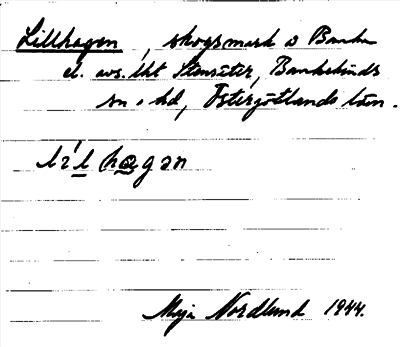 Lillhagen, skogsmark o Banke
el. avs. lht Stensäter, Bankekinds
sn o hd, Östergötlands län.
lilhagan
Maja Nordlund 1944.